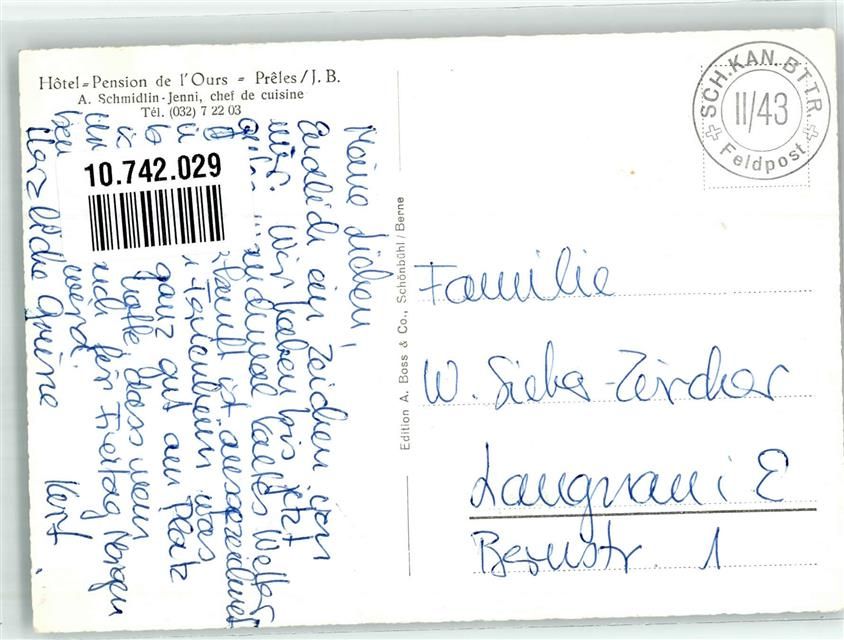 Hôtel-Pension de l'Ours - Prêles/J. B.
A. Schmidlin-Jenni, chef de cuisine
Tél. (032) 7 22 03
10.742.029
Meine Lieben,
Endlich ein Zeichen von
mir. Wir haben bis jetzt
kaltes Wetter
ist ausgezeichnet
Ferienheim was
ganz gut am Platz
hoffe, dass wenn
werd
für Freitag Morgen
Herzliche Grüsse Kurt.
Edition A. Boss & Co., Schönbühl/Berne
SCH.KAN.BTTR.
II/43
Feldpost
Familie
W. Sieber-Zürcher
Langnau i E
Bernstr. 1